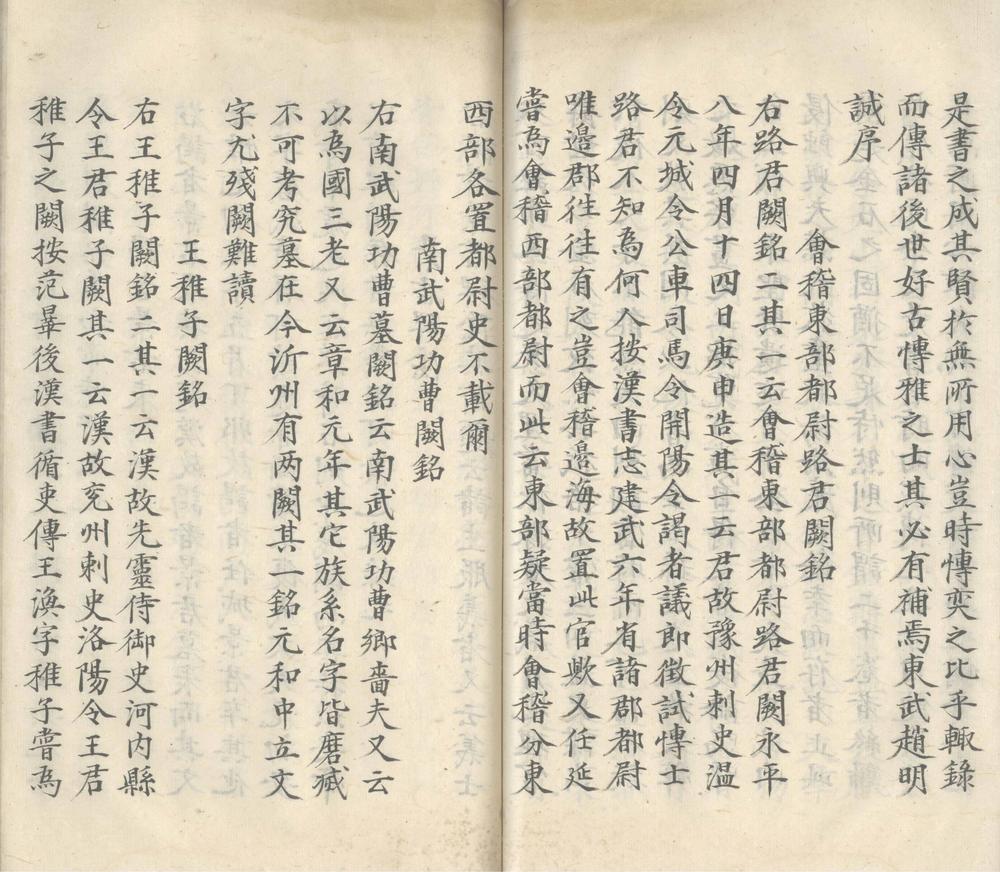 是書之成其賢於無所用心豈時愽奕之比乎輙錄
而傳諸後世好古愽雅之士其必有補焉東武趙明
誠序
會稽東部都尉路君闕銘
右路君闕銘二其一云會稽東部都尉路君闕永平
八年四月十四日庚申造其一云君故豫州刺史溫
令元城令公車司馬令開陽令謁者議郎徵試愽士
路君不知為何人按漢書志建武六年省諸郡都尉
唯邊郡往往有之豈會稽邉海故置此官歟又任延
嘗為會稽西部都尉而此云東部疑當時會稽分東
西部各置都尉史不載爾
南武陽功曹闕銘
右南武陽功曹墓闕銘云南武陽功曹鄉嗇夫又云
以為國三老又云章和元年其它族系名字皆磨滅
不可考究墓在今沂州有两闕其一銘元和中立文
字尤殘闕難讀
王稚子闕銘
右王稚子闕銘二其一云漢故先靈侍御史河内縣
令王君稚子闕其一云漢故兖州刺史洛陽令王君
稚子之闕按范曅後漢書循吏傳王渙字稚子嘗為